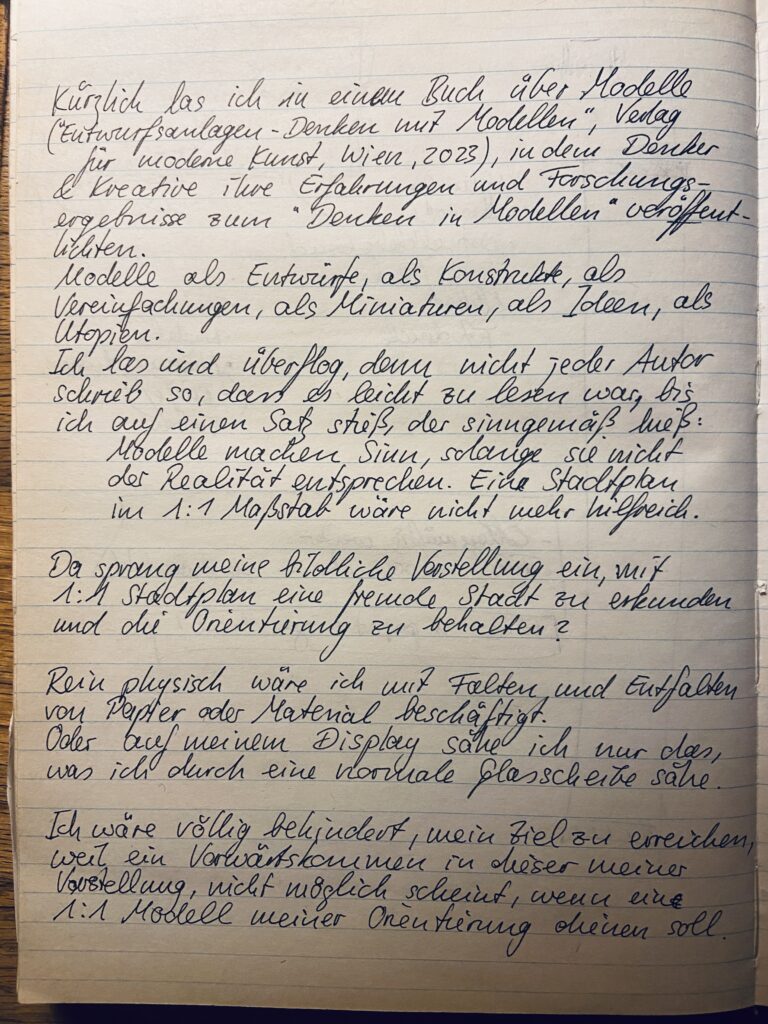 Kürzlich las ich in einem Buch über Modelle
("Entwurfsanlagen - Denken mit Modellen", Verlag
für moderne Kunst, Wien, 2023), in dem Denker
& Kreative ihre Erfahrungen und Forschungs-
ergebnisse zum "Denken in Modellen" veröffent-
lichten.
Modelle als Entwürfe, als Konstrukte, als
Vereinfachungen, als Miniaturen, als Ideen, als
Utopien.
Ich las und überflog, denn nicht jeder Autor
schrieb so, dass es leicht zu lesen war, bis
ich auf einen Satz stieß, der sinngemäß hieß:
Modelle machen Sinn, solange sie nicht
der Realität entsprechen. Eine Stadtplan
im 1:1 Maßstab wäre nicht mehr hilfreich.
Da sprang meine bildliche Vorstellung ein, mit
1:1 Stadtplan eine fremde Stadt zu erkunden
und die Orientierung zu behalten?
Rein physisch wäre ich mit Falten und Entfalten
von Papier oder Material beschäftigt.
Oder auf meinem Display sähe ich nur das,
was ich durch eine normale Glasscheibe sähe.
Ich wäre völlig behindert, mein Ziel zu erreichen,
weil ein Vorwärtskommen in dieser meiner
Vorstellung, nicht möglich scheint, wenn eine
1:1 Modell meiner Orientierung dienen soll.